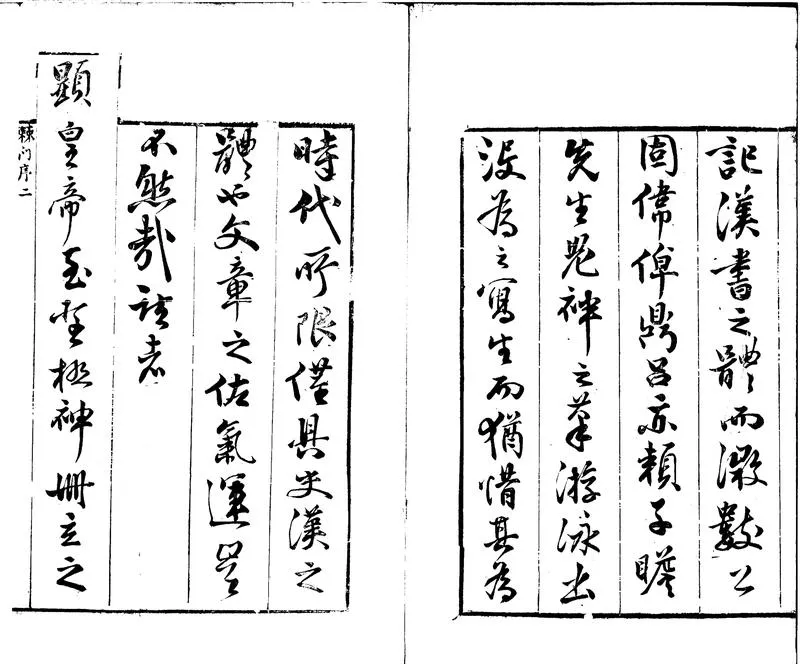 記漢書之體而激數公
固偉俾鼎呂亦賴子瞻
先生鬼神之筆游泳出
沒為之寫生而猶惜其為
時代所限僅具史漢之
體也文章之佐氣運豈
不然哉往者
顯皇帝至聖極神冊立之
棘門序二